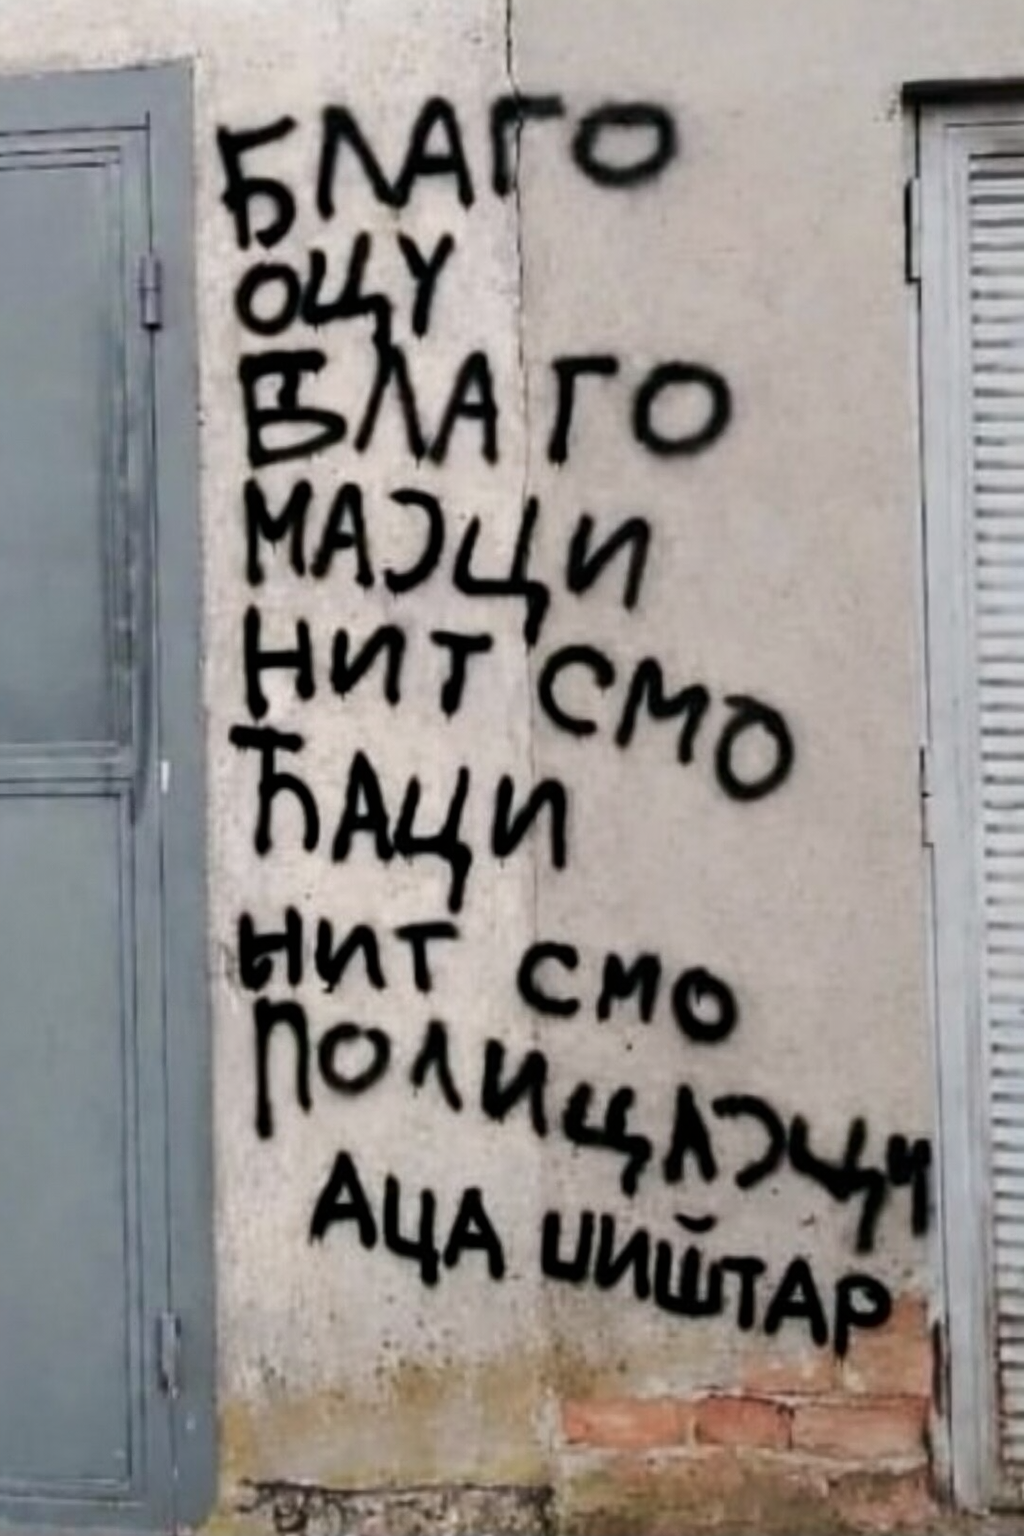 БЛАГО
ОЦУ
БЛАГО
МАЈЦИ
НИТ СМО
ЋАЦИ
НИТ СМО
ПОЛИЦАЈЦИ
АЦА ЏИШТАР